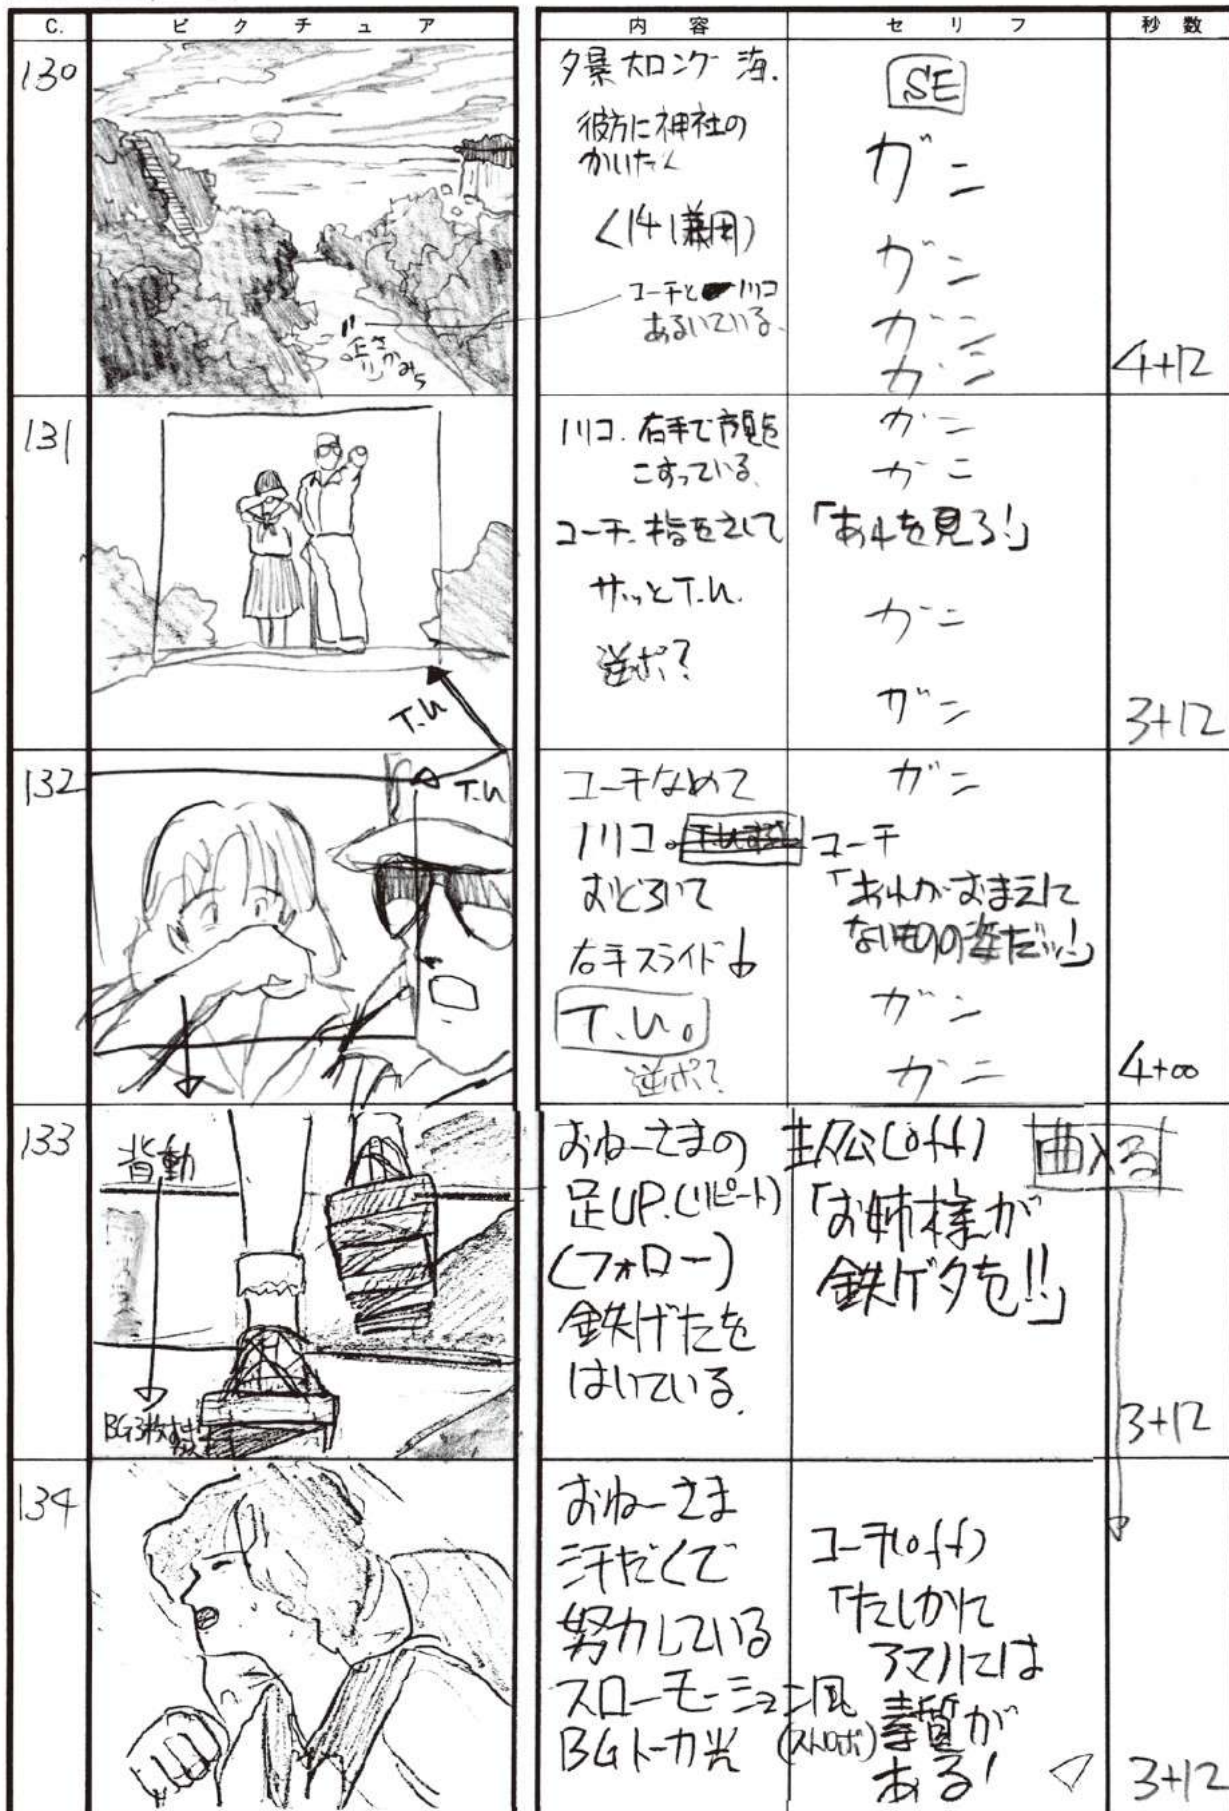 C. ピクチュア 内容 セリフ 秒数
130
さかみち
夕景 大ロング 海.
彼方に神社の
かいだん
(141兼用)
コーチとノリコ
あるいている.
SE
ガーン
ガーン
ガーン
ガーン
4+12
131
T.U
ノリコ. 右手で顔を
こすっている.
コーチ. 指をさして
サッとT.U.
逆ポ?
ガーン
ガーン
「あれを見ろ!」
ガーン
ガーン
3+12
132
T.U
コーチなめて
ノリコ。
おどろいて
右手スライド↓
T.U.
逆ポ?
ガーン
コーチ
「あれがおまえに
ないものの姿だッ!」
ガーン
ガーン
4+00
133
背動
おねーさまの
足UP.(リピート)
(フォロー)
鉄げたを
はいている.
主人公(off)
「お姉様が
鉄ゲタを!!」
曲入る
3+12
134
おねーさま
汗だくで
努力している
スローモーション風
BGトーカ光 (ストロボ)
コーチ(off)
「たしかに
アマノには
素質が
ある!
3+12